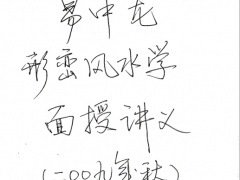 易中龙
形峦风水学
面授讲义
(二00九年秋)